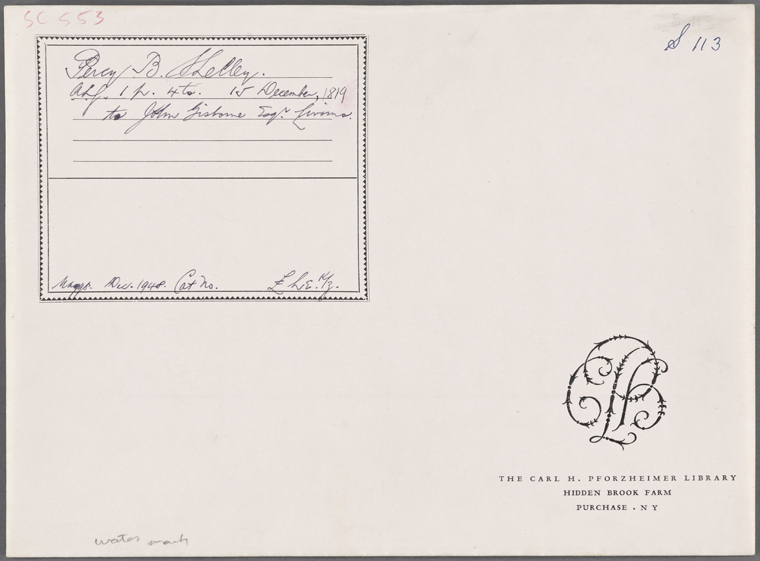 SC 553
S 113
Percy B. Shelley.
1 p. 4to. 15 December, 1819
to John Gisborne Esqr.
Maggs. Dec. 1948. Cat No. £
THE CARL H. PFORZHEIMER LIBRARY
HIDDEN BROOK FARM
PURCHASE • N Y
water mark